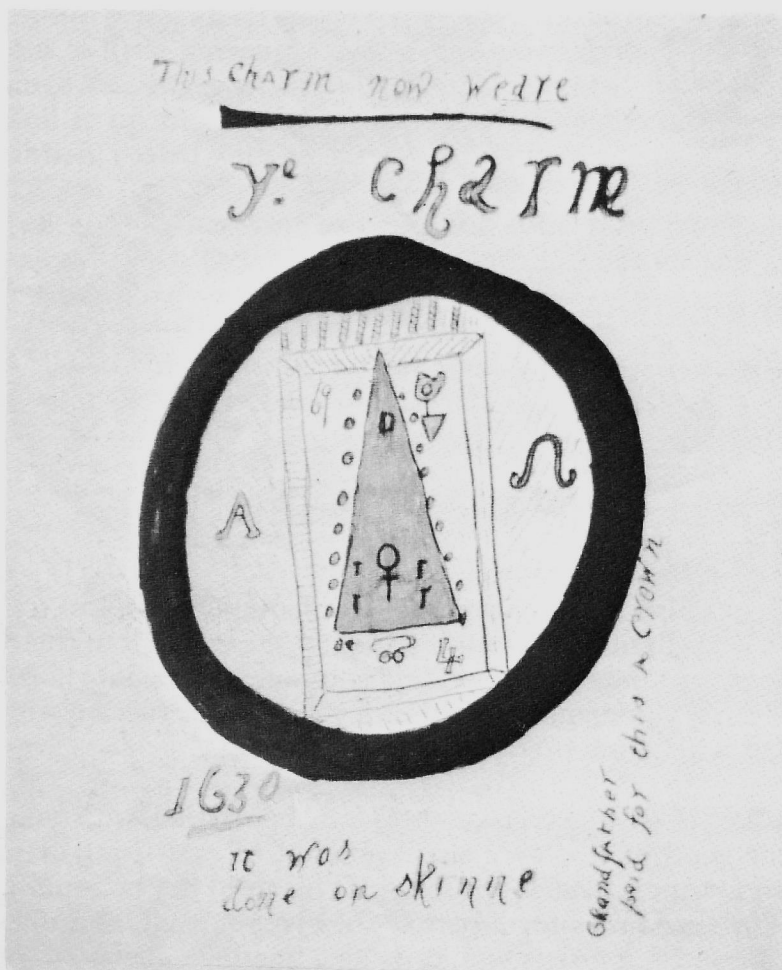 This charm now weare
yᵉ. charme
69
D
A
Ω
r r
r r
se
4
1630
it was
done on skinne
Grandfather
paid for this a crown